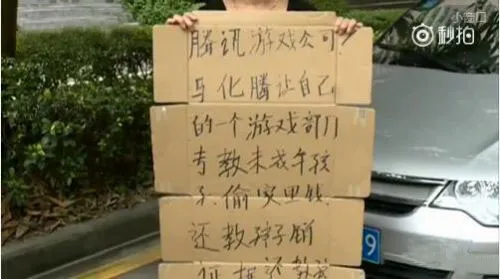 小窗口
秒拍
腾讯游戏公司,
马化腾让自己
的一个游戏部门
专教未成年孩
子,偷家里钱
还教辩子销
证据还教
9